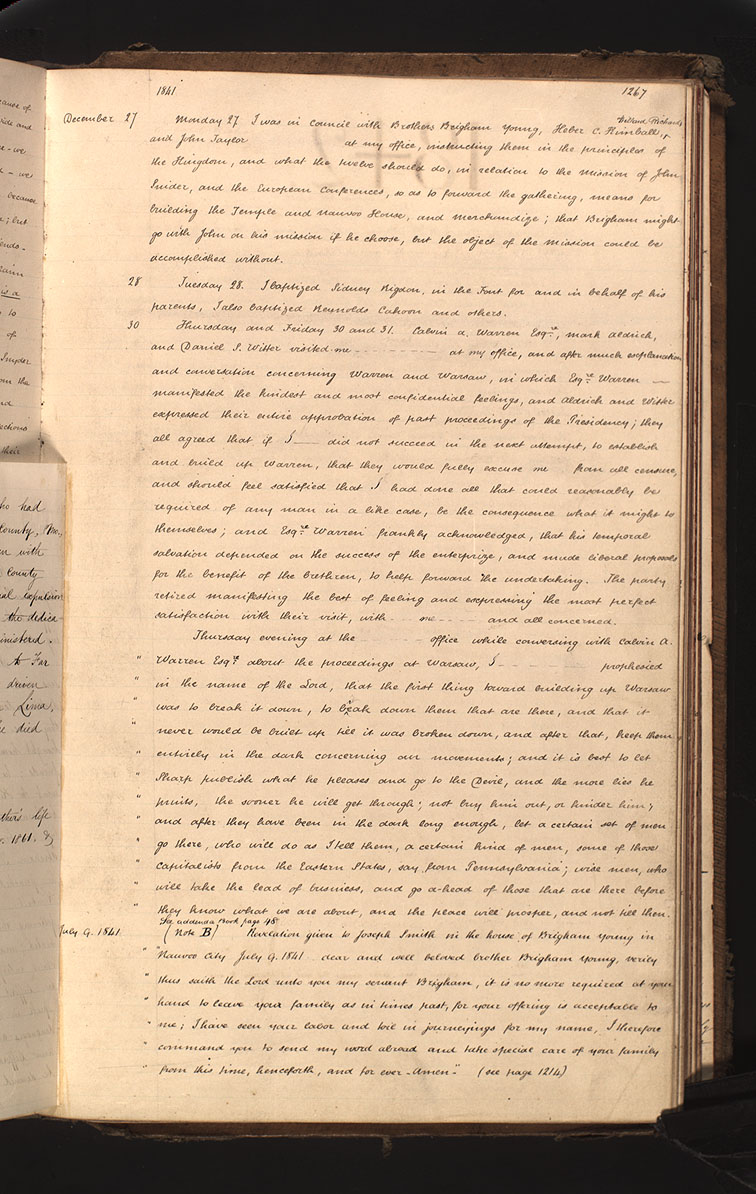 1841 1267
Willard Richards
December 27 Monday 27 I was in Council with Brothers Brigham Young, Heber C. Kimball, ^
and John Taylor at my office, instructing them in the principles of
the Kingdom, and what the twelve should do, in relation to the mission of John
Snider, and the European Conferences, so as to forward the gathering, means for
building the Temple and Nauvoo House, and merchandize; that Brigham might
go with John on his mission if he choose, but the object of the mission could be
accomplished without.
28 Tuesday 28. I baptized Sidney Rigdon, in the Font for and in behalf of his
parents, I also baptized Reynolds Cahoon and others.
30 Thursday and Friday 30 and 31. Calvin A. Warren Esqre, Mark Aldrich,
and Daniel S. Witter visited me at my office, and after much explanation
and conversation concerning Warren and Warsaw, in which Esqre Warren —
manifested the kindest and most confidential feelings, and Aldrich and Witter
expressed their entire approbation of past proceedings of the Presidency; they
all agreed that if I did not succeed in the next attempt, to establish
and build up Warren, that they would fully excuse me from all censure,
and should feel satisfied that I had done all that could reasonably be
required of any man in a like case, be the consequence what it might to
themselves; and Esqre Warren frankly acknowledged, that his temporal
salvation depended on the success of the enterprize, and made liberal proposals
for the benefit of the brethren, to help forward the undertaking. The party
retired manifesting the best of feeling and expressing the most perfect
satisfaction with their visit, with me and all concerned.
Thursday evening at the office while conversing with Calvin A.
" Warren Esqre about the proceedings at Warsaw, I prophesied
" in the name of the Lord, that the first thing toward building up Warsaw
" was to break it down, to break down them that are there, and that it
" never would be built up till it was broken down, and after that, keep them
" entirely in the dark concerning our movements; and it is best to let
" Sharp publish what he pleases and go to the Devil, and the more lies he
" prints, the sooner he will get through; not buy him out, or hinder him;
" and after they have been in the dark long enough, let a certain set of men
" go there, who will do as I tell them, a certain kind of men, some of those
" capitalists from the Eastern States, say from Pennsylvania; wise men, who
" will take the lead of business, and go a-head of those that are there before
" they know what we are about, and the place will prosper, and not till then.
See addenda Book page 48
July 9. 1841 (Note B) Revelation given to Joseph Smith in the house of Brigham Young in
" Nauvoo City July 9. 1841 dear and well beloved brother Brigham Young, verily
" thus saith the Lord unto you my servant Brigham, it is no more required at your
" hand to leave your family as in times past, for your offering is acceptable to
" me; I have seen your labor and toil in journeyings for my name, I therefore
" command you to send my word abroad and take special care of your family
" from this time, henceforth, and for ever - Amen" (see page 1214)
cause of
because
of
Snyder
their
who had
County, Mo,
County
the dedica
At Far
driven
Lima,
he died
life
1861.